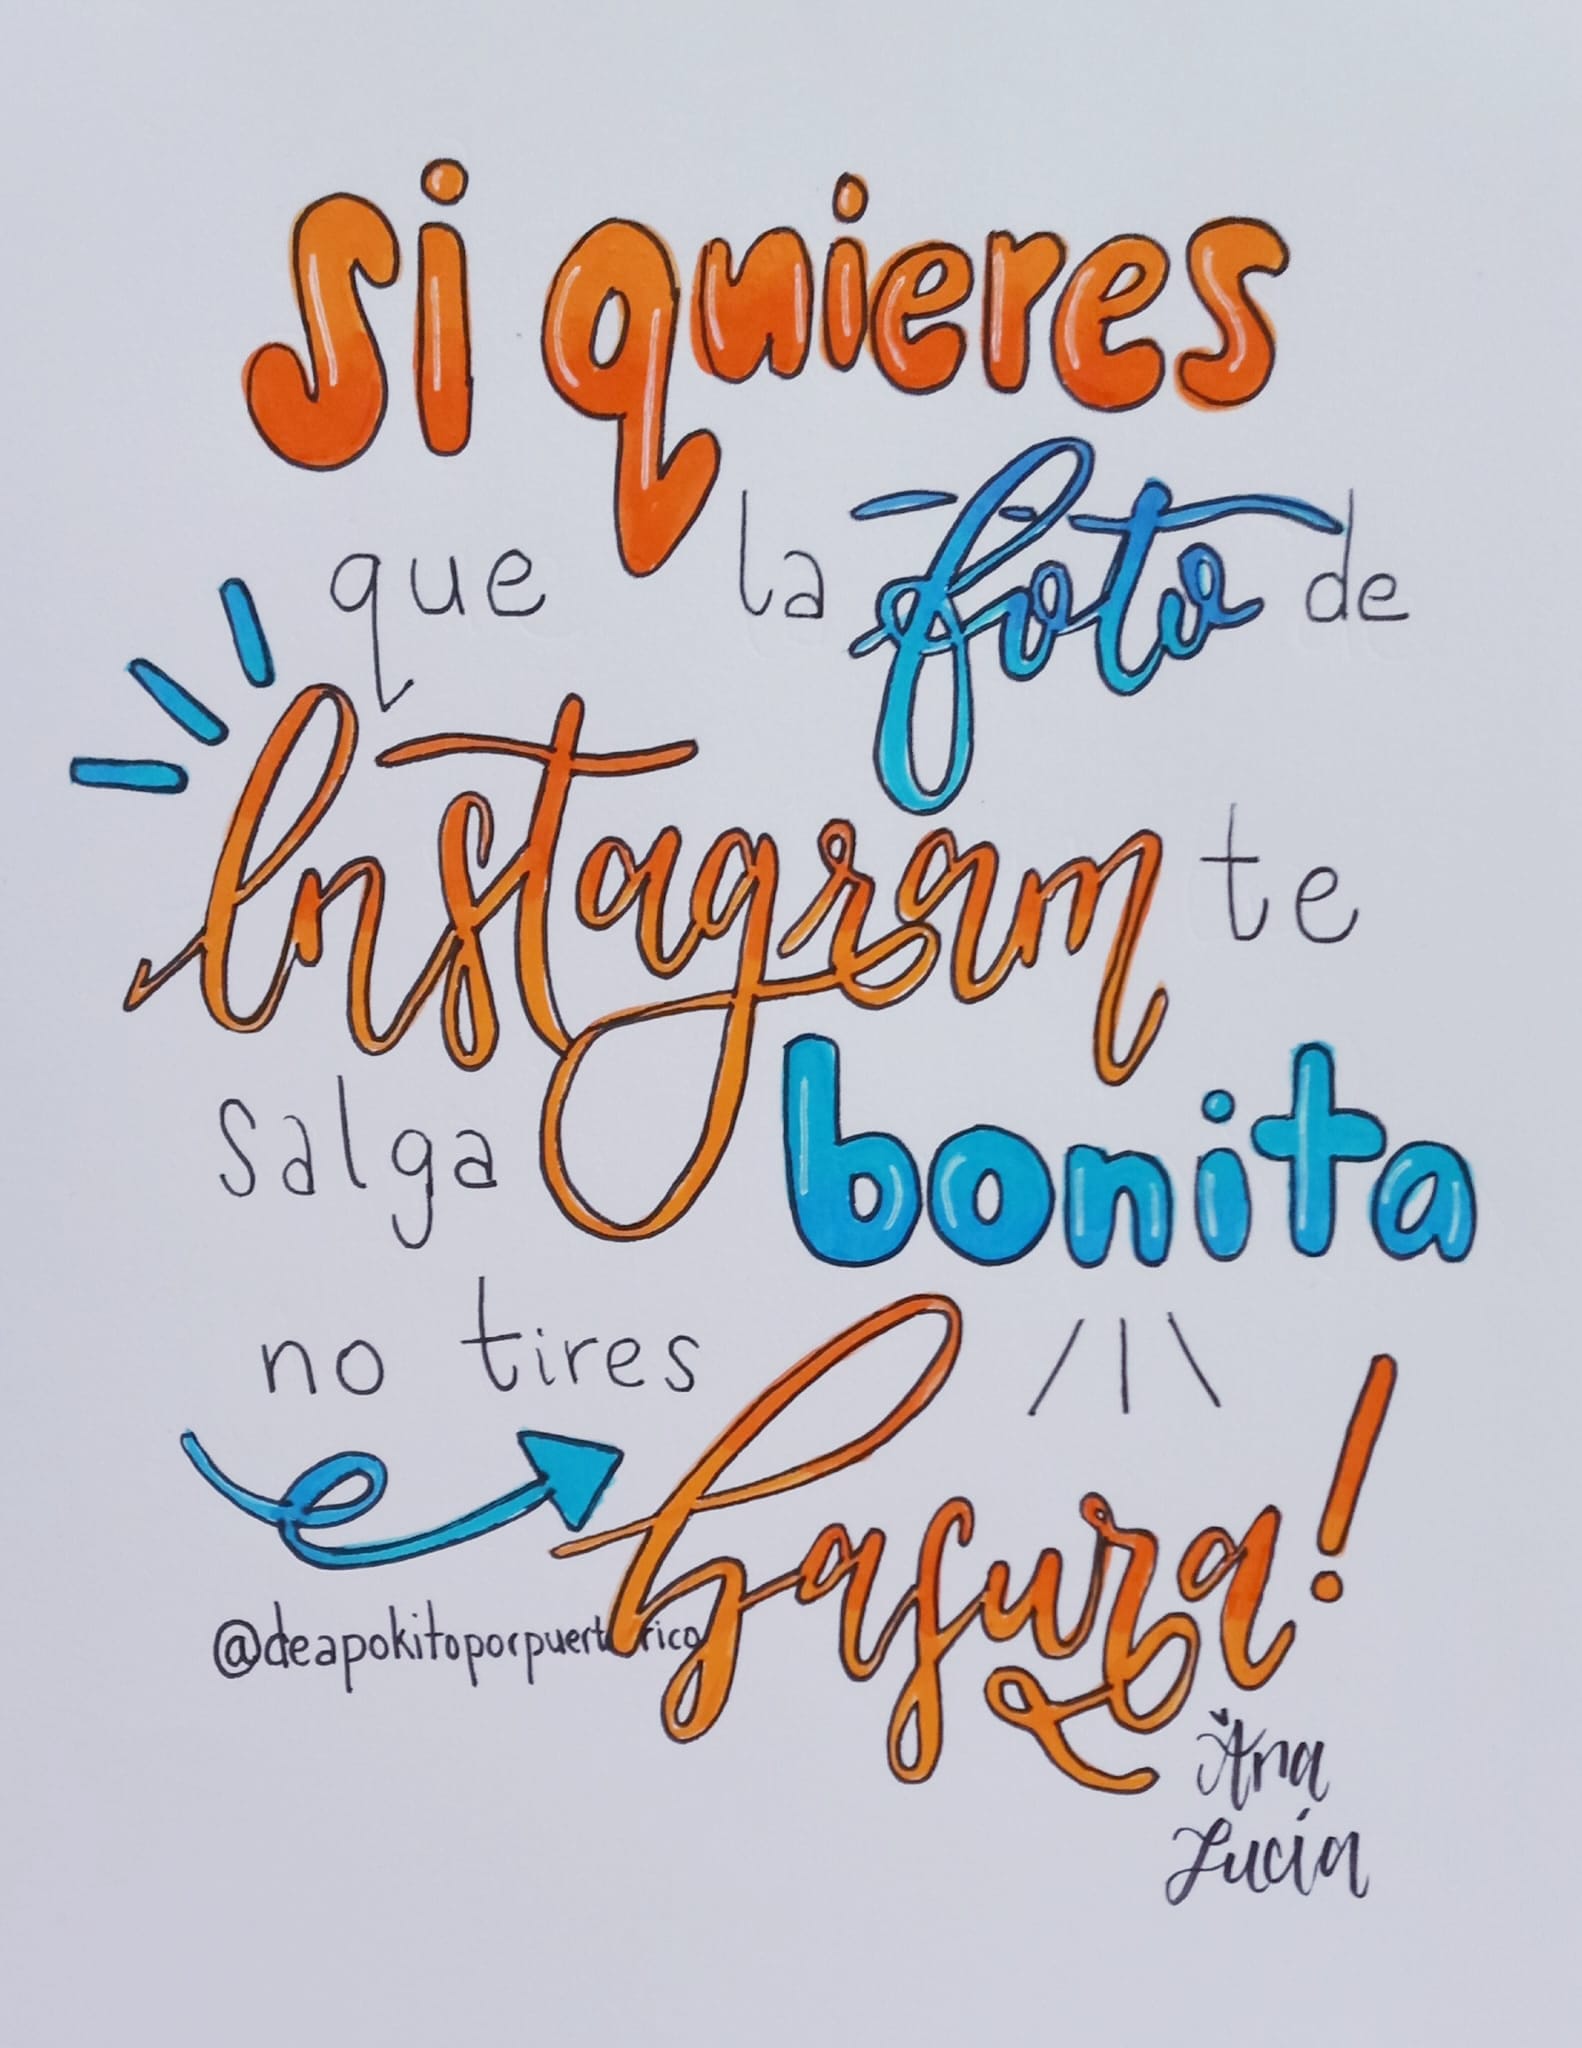 si quieres
que la foto de
Instagram te
salga bonita
no tires
basura!
@deapokitoporpuertorico
Ana
Lucía